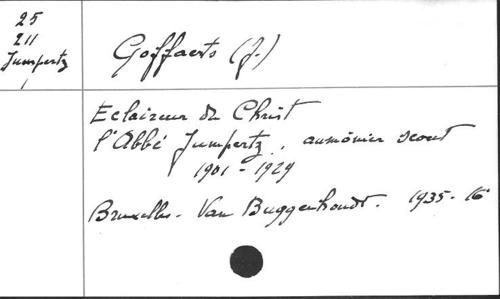 25
211
Jumpertz
Goffaerts (J.)
Eclaireur du Christ
l'Abbé Jumpertz, aumônier scout
1901 - 1929
Bruxelles - Van Buggenhoudt. 1935 - 16°